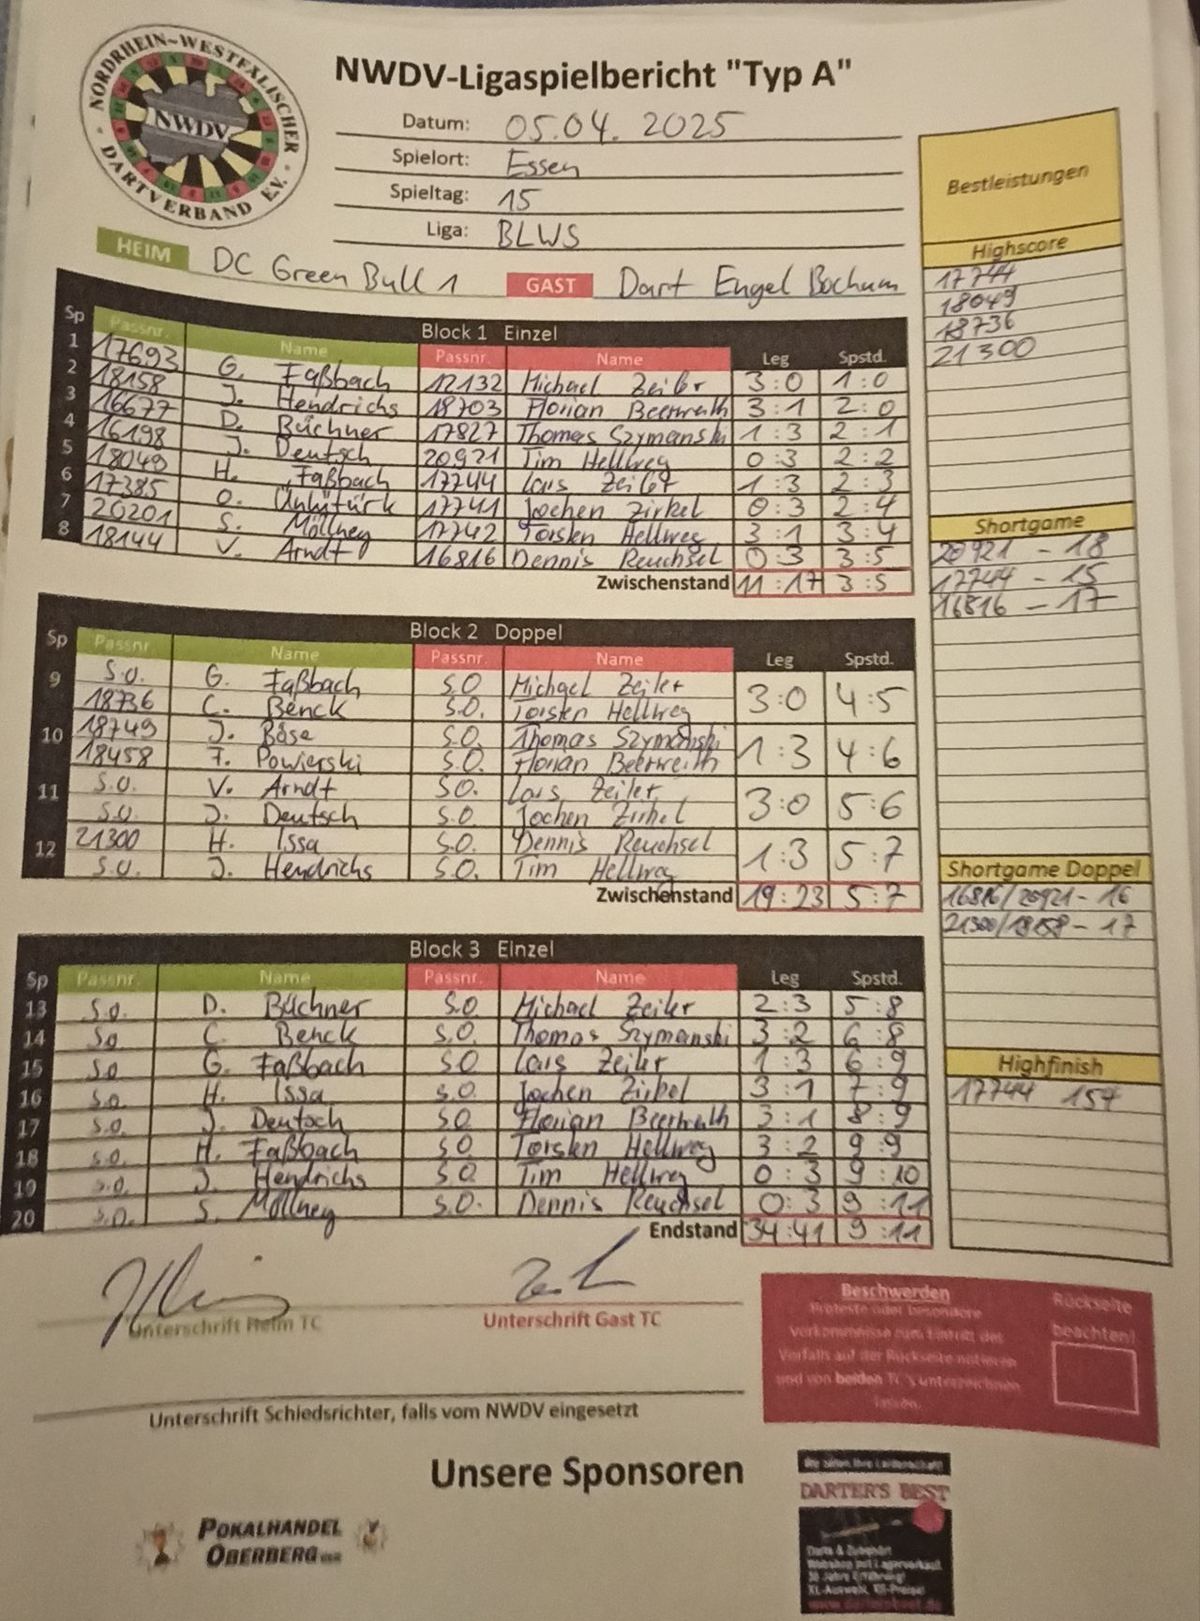 NORDRHEIN-WESTFÄLISCHER
NWDV
DARTVERBAND E.V.
NWDV-Ligaspielbericht "Typ A"
Datum: 05.04.2025
Spielort: Essen
Spieltag: 15
Liga: BLWS
HEIM DC Green Bull 1 GAST Dart Engel Bochum
Sp Block 1 Einzel
Passnr. Name Passnr. Name Leg Spstd.
1 17693 G. Faßbach 12132 Michael Zeiler 3:0 1:0
2 18158 J. Hendrichs 18703 Florian Beerwerth 3:1 2:0
3 16677 D. Büchner 17827 Thomas Szymanski 1:3 2:1
4 16198 J. Deutsch 20921 Tim Hellweg 0:3 2:2
5 18049 H. Faßbach 17744 Lars Zeiler 1:3 2:3
6 17385 O. Ünlütürk 17741 Jochen Zirkel 0:3 2:4
7 20201 S. Möllney 17742 Torsten Hellweg 3:1 3:4
8 18144 V. Arndt 16816 Dennis Reuchsel 0:3 3:5
Zwischenstand 11:17 3:5
Sp Block 2 Doppel
Passnr. Name Passnr. Name Leg Spstd.
9 S.O. G. Faßbach S.O Michael Zeiler 3:0 4:5
18736 C. Benck S.O. Torsten Hellweg
10 18749 J. Böse S.O. Thomas Szymanski 1:3 4:6
18458 F. Powierski S.O. Florian Beerwerth
11 S.O. V. Arndt SO. Lars Zeiler 3:0 5:6
S.O. J. Deutsch S.O. Jochen Zirkel
12 21300 H. Issa S.O. Dennis Reuchsel 1:3 5:7
S.O. J. Hendrichs S.O. Tim Hellweg
Zwischenstand 19:23 5:7
Block 3 Einzel
Sp Passnr. Name Passnr. Name Leg Spstd.
13 S.O. D. Büchner S.O. Michael Zeiler 2:3 5:8
14 SO C. Benck S.O. Thomas Szymanski 3:2 6:8
15 SO G. Faßbach SO Lars Zeiler 1:3 6:9
16 S.O. H. Issa S.O. Jochen Zirkel 3:1 7:9
17 S.O. J. Deutsch SO Florian Beerwerth 3:1 8:9
18 S.O. H. Faßbach SO Torsten Hellweg 3:2 9:9
19 S.O. J. Hendrichs S.O Tim Hellweg 0:3 9:10
20 S.O. S. Möllney S.O. Dennis Reuchsel 0:3 9:11
Endstand 34:41 9:11
Bestleistungen
Highscore
17744
18049
18736
21300
Shortgame
20921 - 18
17744 - 15
16816 - 17
Shortgame Doppel
16816/20921 - 16
21300/18158 - 17
Highfinish
17744 157
Unterschrift Heim TC
Unterschrift Gast TC
Unterschrift Schiedsrichter, falls vom NWDV eingesetzt
Beschwerden
Proteste oder besondere
Vorkommnisse zum Eintritt des
Vorfalls auf der Rückseite notieren
und von beiden TC's unterzeichnen
lassen.
Rückseite
beachten!
Unsere Sponsoren
POKALHANDEL
OBERBERG
DARTER'S BEST
Darts & Zubehör!
Webshop mit Lagerverkauf.
XL-Auswahl, XS-Preise!